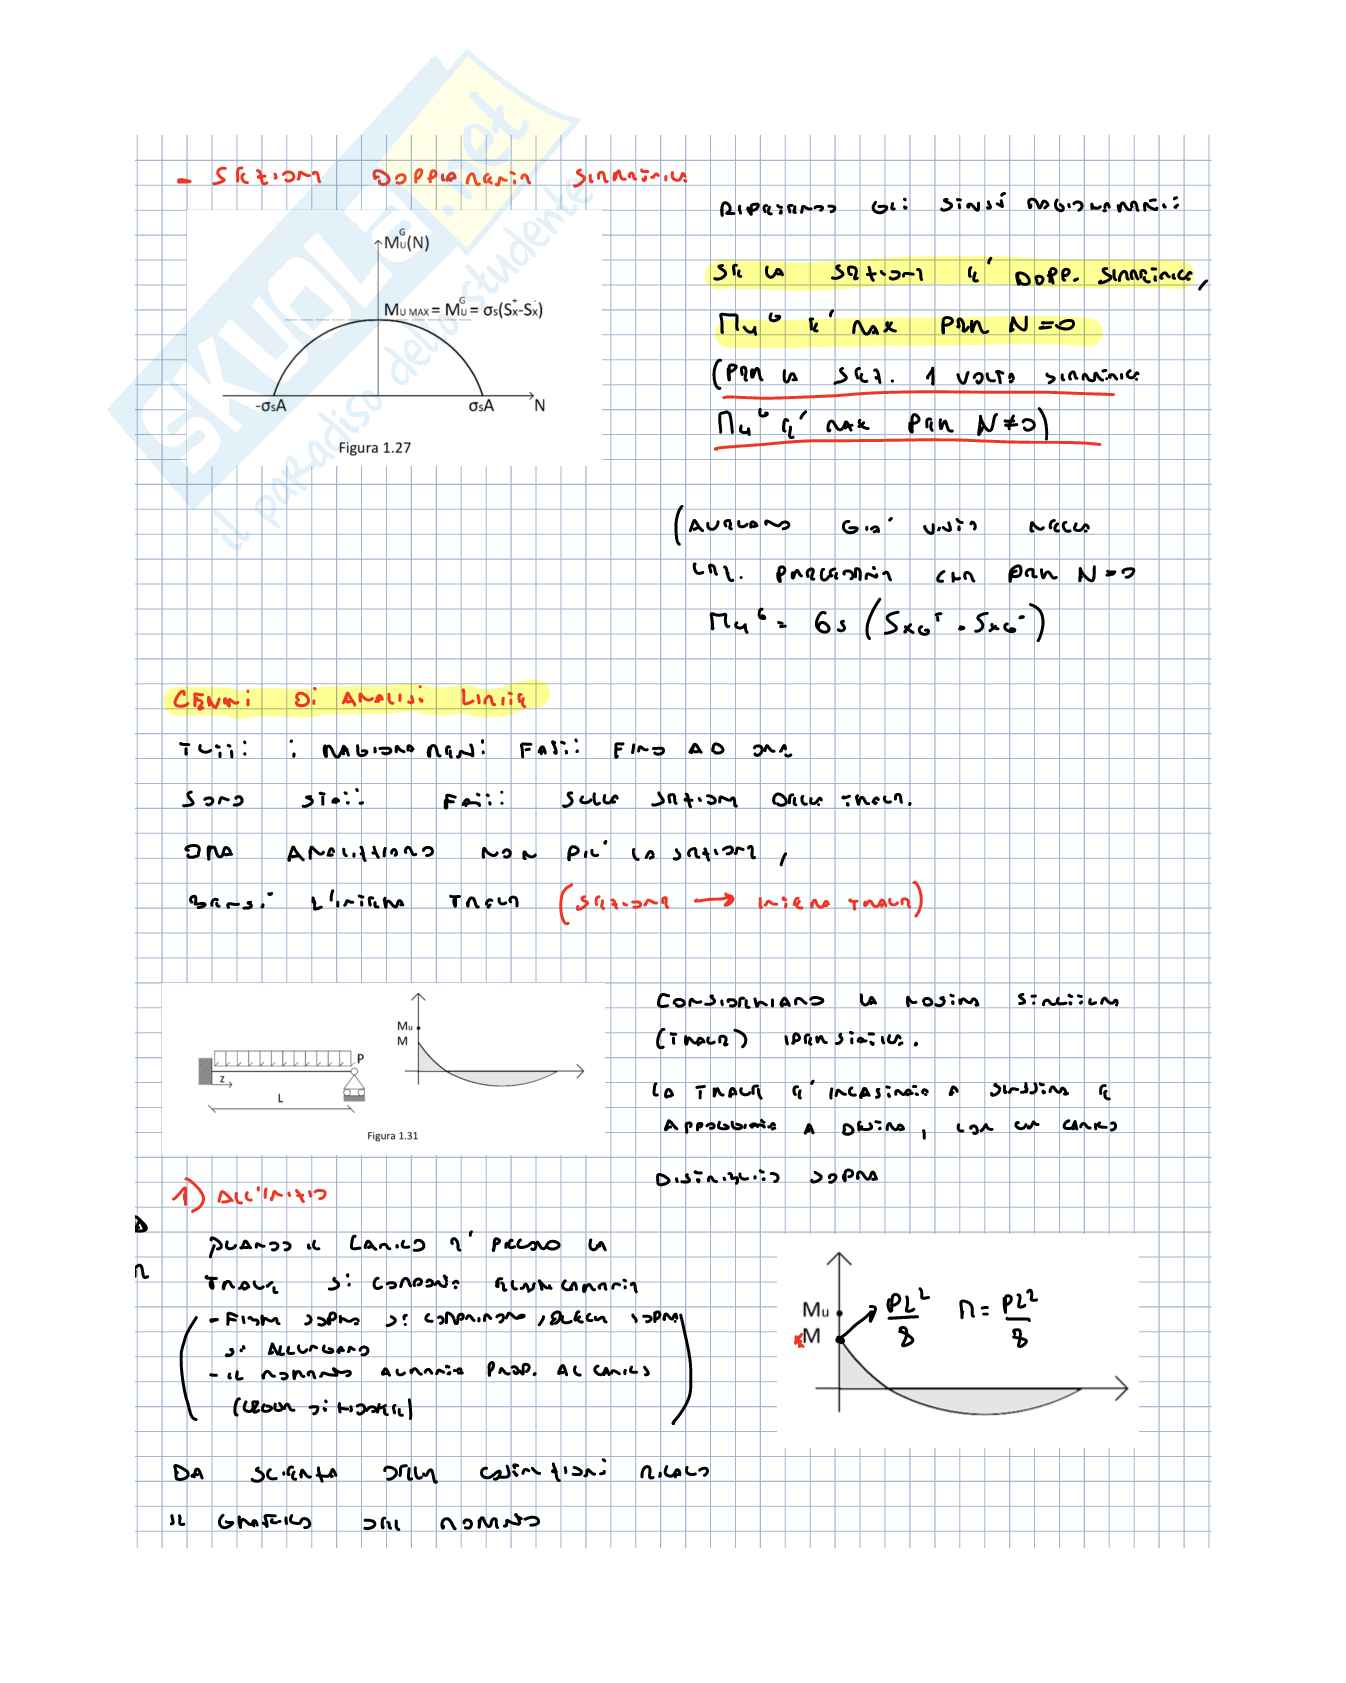 - SEZIONI DOPPIAMENTE SIMMETRICHE
RIPETENDO GLI STESSI RAGIONAMENTI:
SE LA SEZIONE E' DOPP. SIMMETRICA,
Mu^G E' MAX PER N=0
(PER LA SEZ. 1 VOLTA SIMMETRICA
Mu^G E' MAX PER N≠0)
Mu^G(N)
Mu MAX = Mu^G = σs(Sx^+-Sx^-)
-σsA
σsA
N
Figura 1.27
(AVEVAMO GIA' VISTO NELLA
LEZ. PRECEDENTE CHE PER N=0
Mu^G = σs (SxG^+ - SxG^-)
CENNI DI ANALISI LIMITE
TUTTI I RAGIONAMENTI FATTI FINO AD ORA
SONO STATI FATTI SULLE SEZIONI DELLA TRAVE.
ORA ANALIZZIAMO NON PIU' LA SEZIONE,
BENSI' L'INTERA TRAVE (SEZIONE → INTERA TRAVE)
P
z
L
Mu
M
Figura 1.31
CONSIDERIAMO LA NOSTRA STRUTTURA
(TRAVE) IPERSTATICA.
LA TRAVE E' INCASTRATA A SINISTRA E
APPOGGIATA A DESTRA, CON UN CARICO
DISTRIBUITO SOPRA
1) ALL'INIZIO
QUANDO IL CARICO E' PICCOLO LA
TRAVE SI COMPORTA ELASTICAMENTE
- FIBRE SOPRA SI COMPRIMONO, QUELLE SOPRA
SI ALLUNGANO
- IL MOMENTO AUMENTA PROP. AL CARICO
(LEGGE DI HOOKE)
DA SCIENZA DELLE COSTRUZIONI RICAVO
IL GRAFICO DEL MOMENTO
Mu
M
PL²/8
M = PL²/8
SKUOLA.net
il paradiso dello studente